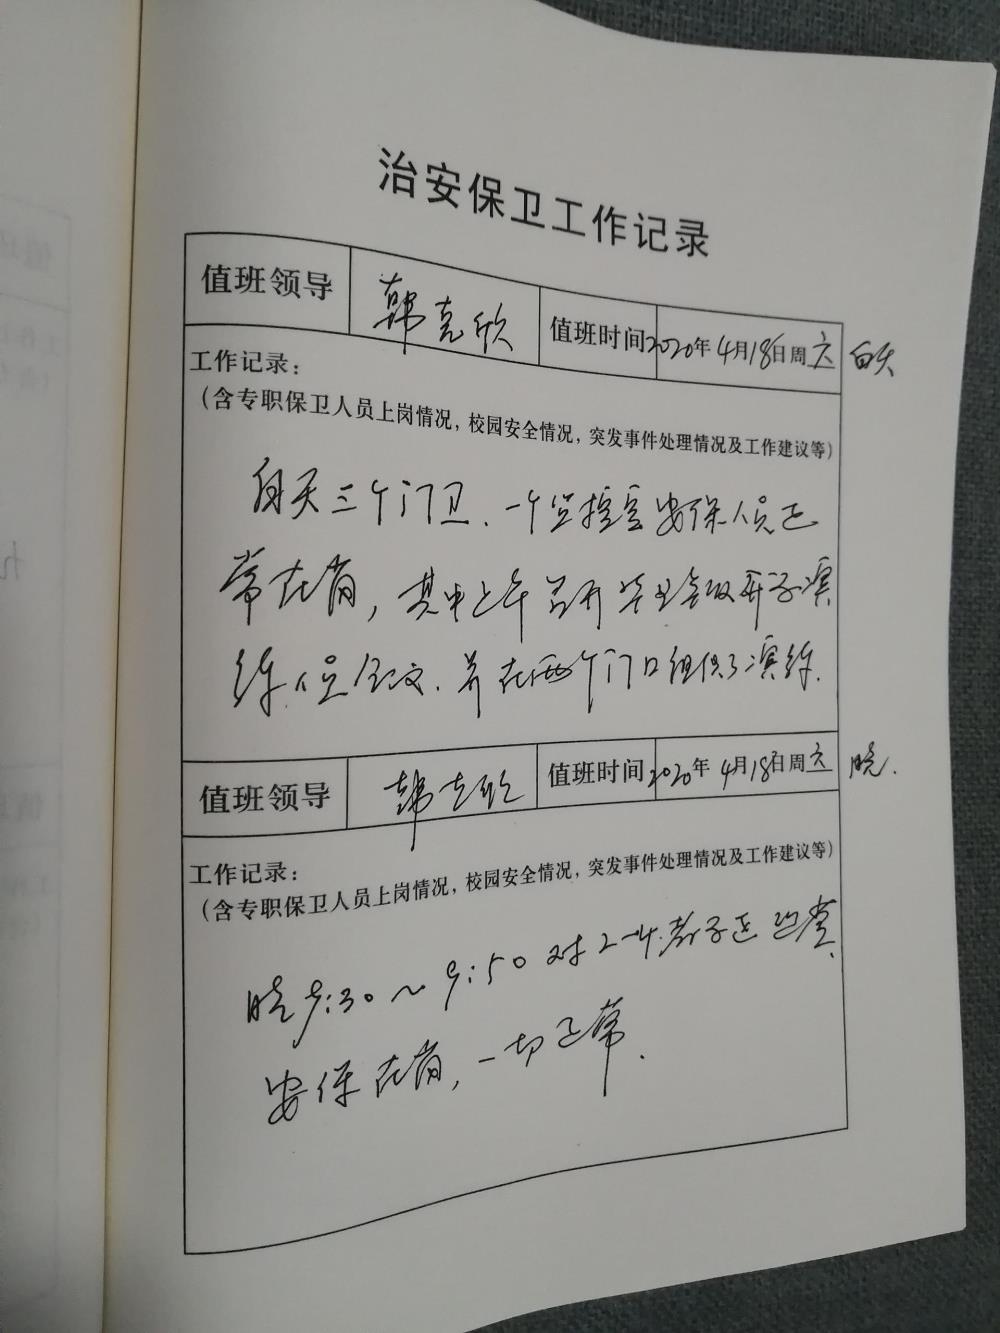 治安保卫工作记录
值班领导 韩克欣 值班时间 2020年4月18日周六 白天
工作记录：
（含专职保卫人员上岗情况，校园安全情况，突发事件处理情况及工作建议等）
白天三个门卫、一个监控室安保人员正
常在岗，其中上午召开毕业年级开学演
练 会议、并在两个门口组织了演练.
值班领导 韩克欣 值班时间 2020年4月18日周六 晚.
工作记录：
（含专职保卫人员上岗情况，校园安全情况，突发事件处理情况及工作建议等）
晚9:30～9:50对2-4 巡查
安保在岗，一切正常.